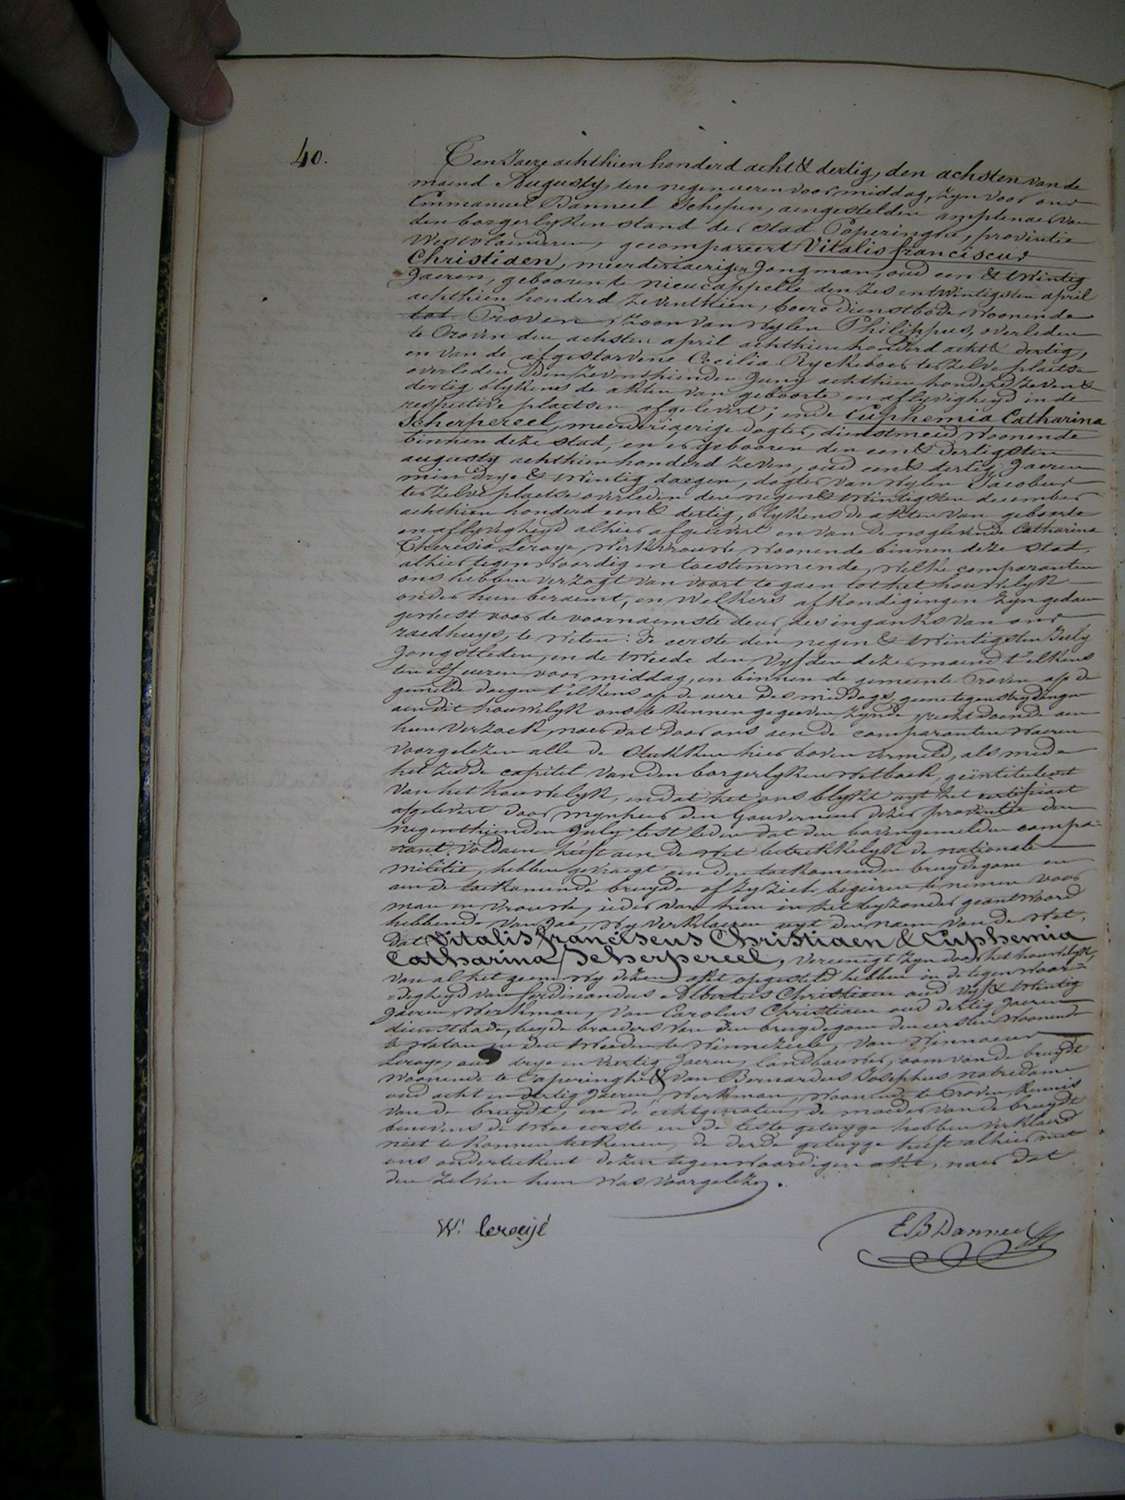 40.
Ten Jaere achthien honderd acht & dertig, den achsten van de
maend Augusty, ten negen ueren voor middag, zyn voor ons
Emmanuel Banneel Schepen, aengestelden amptenaer van
den borgerlyken stand der stad Poperinghe, provintie
Westvlaenderen, gecompareert Vitalis franciscus
Christiaen, meerderjaerigen Jongman, oud een & twintig
Jaeren, gebooren te Nieucappelle den zes entwintigsten april
achthien honderd zeventhien, boere dienstbode woonende
tot Proven zoon van wylen Philippus, overleden
te Proven den achsten april achthien honderd acht & dertig,
en van de afgestorvene Cecilia Ryckeboer te zelve plaetse
overleden den zeventhienden Juny achthien honderd zeven &
dertig, blykens de akten van geboorte en aflyvigheyd in de
respective plaetsen afgelevert; ende Euphemia Catharina
Scherpereel, meerderjaerige dogter, dienstmeid woonende
binnen deze stad, en er gebooren den een & dertigsten
augusty achthien honderd zeven, oud een & dertig Jaeren
min drye & twintig daegen, dogter van wylen Jacobus
ter zelve plaetse overleden den negen & twintigsten december
achthien honderd een & dertig, blykens de akten van geboorte
en aflyvigheyd alhier afgelevert en van de noglevende Catharina
Theresia Leroye, werkvrouwe woonende binnen deze stad,
alhier tegenwoordig en toestemmende, welke comparanten
ons hebben verzogt van voort te gaen tot het houwelyk
onder hun beraemt, en welkers afkondigingen zyn gedaen
geweest voor de voornaemste deur des ingangs van ons
raedhuys, te weten: de eerste den negen & twintigsten July
Jongstleden, en de tweede den vyfden dezer maend t'elkens
ten elf ueren voor middag, en binnen de gemeente Proven op de
gemelde daegen t'elkens op de uere des middags, geene tegenstrydingen
aen dit houwelyk ons te kennen gegeven zynde, recht doende aen
hun verzoek, naer dat door ons aen de comparanten waeren
voorgelezen alle de stukken hier boven vermeld, als mede
het zesde capitel van den borgerlyken wetboek, geintituleert
van het houwelyk, en dat het ons blykt uyt het certificaet
afgelevert door mynheer den Gouverneur dezer provintie den
negenthienden July lest leden dat den bovengemelden compa-
rant voldaen heeft aen de wet betrekkelyk de nationale
militie, hebben gevraegt aen den toekomenden bruydegom en
aen de toekomende bruyde of zy zich begeiren te nemen voor
man en vrouwe, ieder van hun in het byzonder geantwoord
hebbende, van Jae, wy verklaeren uyt den naem van de wet,
dat Vitalis franciscus Christiaen & Euphemia
Catharina Scherpereel, vereenigt zyn door het houwelyk,
van al het geen wy dezen akt opgesteld hebben in de tegenwoor-
digheyd van ferdinandus Albertus Christiaen oud vyf & twintig
Jaeren, werkman, van Carolus Christiaen oud dertig Jaeren
dienstbode, beyde broeders van den bruydegom den eersten woonende
te Watou en den tweeden te Winnezeele, van Winnocus
Leroye, oud drye en veertig Jaeren, landbouwer, oom van de bruyd
woonende te Poperinghe & van Bernardus Josephus notredame
oud acht en dertig Jaeren, werkman, woonende te Proven, kennis
van de bruydt, en de echtgenoten, de moeder van de bruydt
benevens de twee eerste en de leste getuyge hebben verklaerd
niet te konnen teekenen, de derde getuygge heeft alhier met
ons onderteekent dezen tegenwoordigen akt, naer dat
den zelven hun was voorgelezen.
W. leroije
E B Banneel